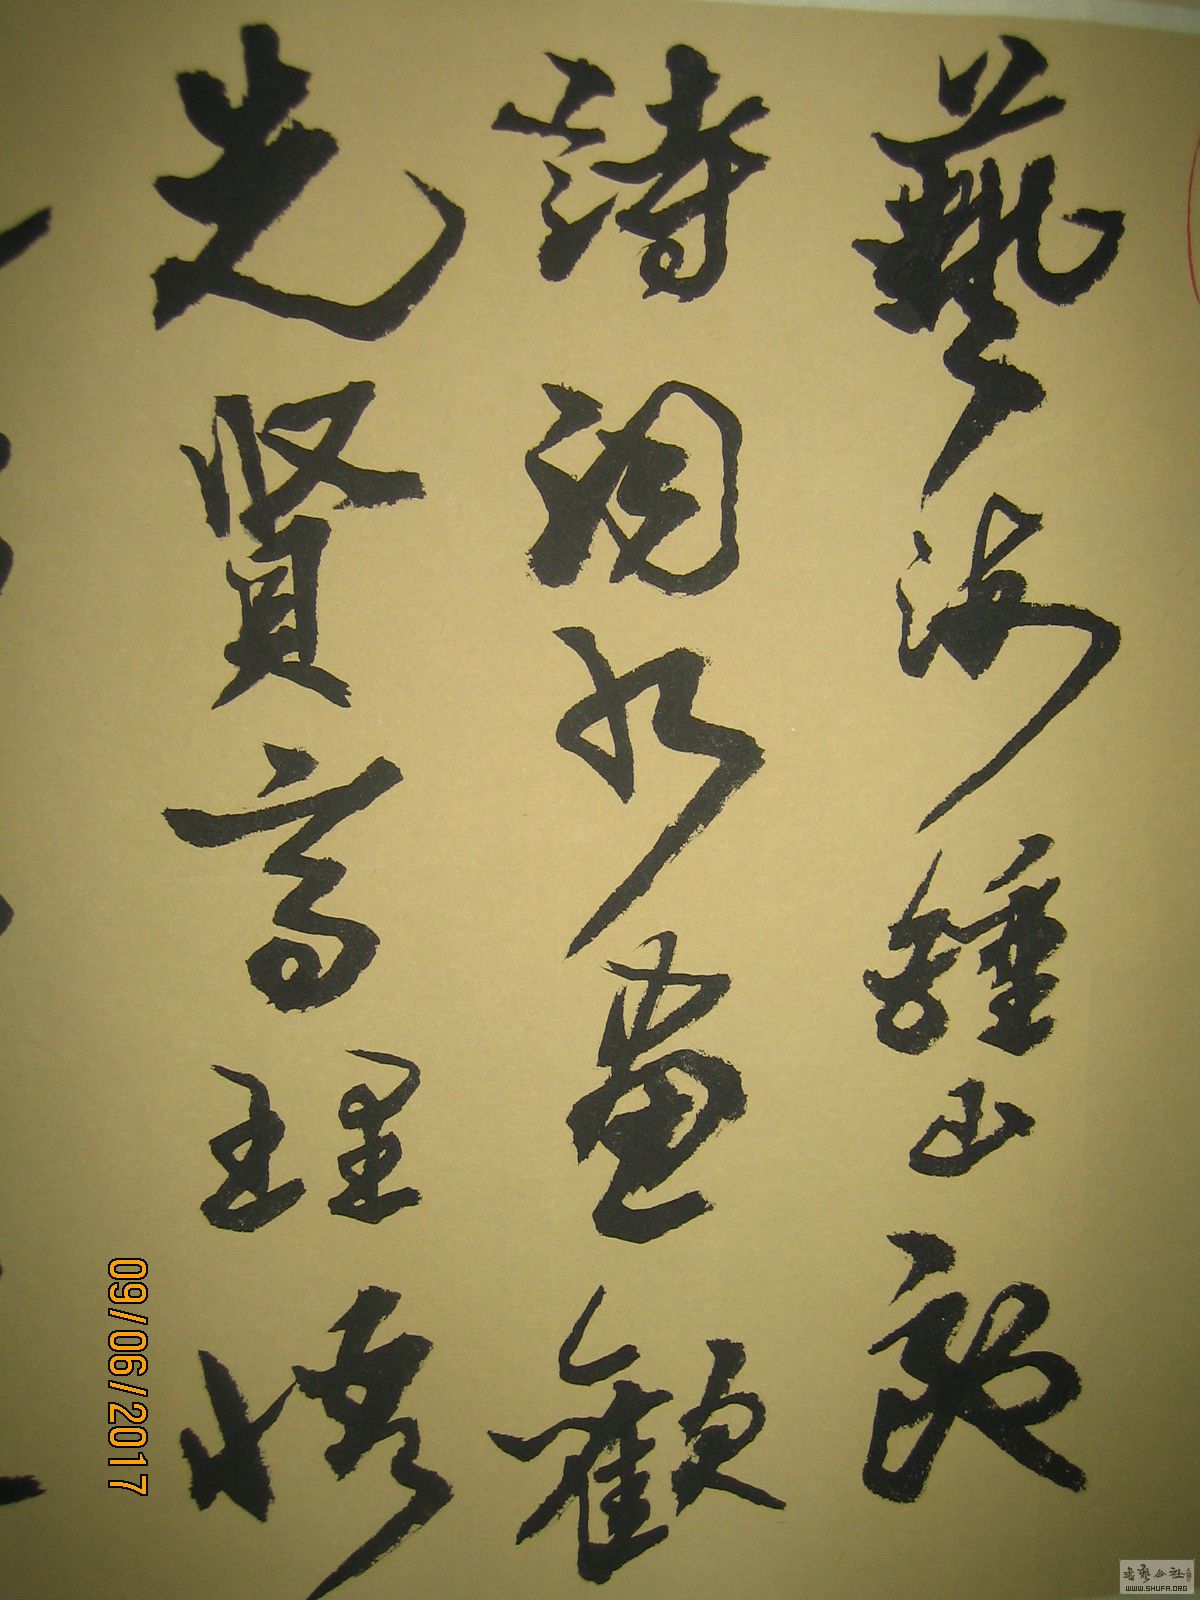 藝海鍾山
詩詞畫歡
先賢高理
09/06/2017
書藝公社
WWW.SHUFA.ORG